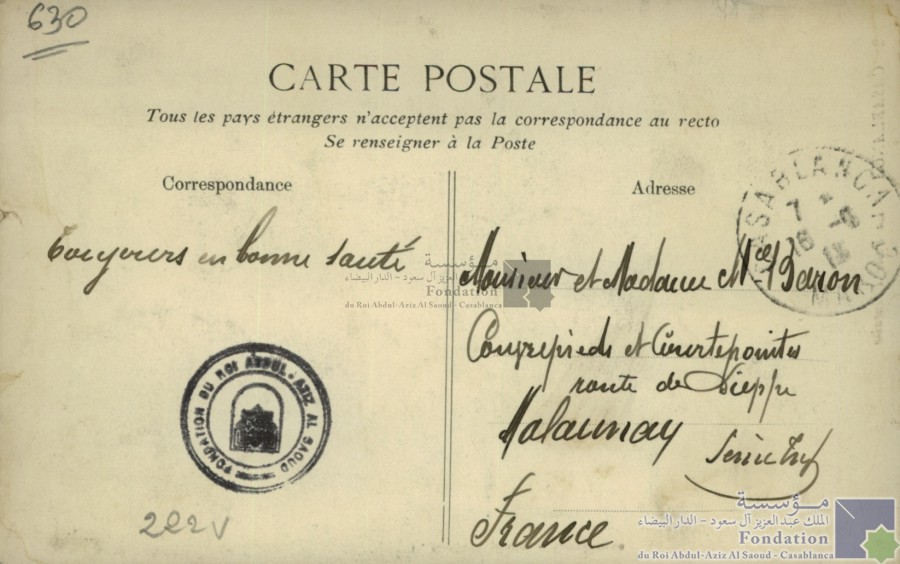 630
CARTE POSTALE
Tous les pays étrangers n'acceptent pas la correspondance au recto
Se renseigner à la Poste
Correspondance
Adresse
CASABLANCA - POSTE
7
MAROC
Toujours en bonne santé
Monsieur et Madame Mce Baron
Couvrepieds et Couvrepointes
route de Dieppe
Malaunay
Seine Inf
France
FONDATION DU ROI ABDUL-AZIZ AL SAOUD
202 v
مؤسسة
الملك عبد العزيز آل سعود - الدار البيضاء
Fondation
du Roi Abdul-Aziz Al Saoud - Casablanca
مؤسسة
الملك عبد العزيز آل سعود - الدار البيضاء
Fondation
du Roi Abdul-Aziz Al Saoud - Casablanca